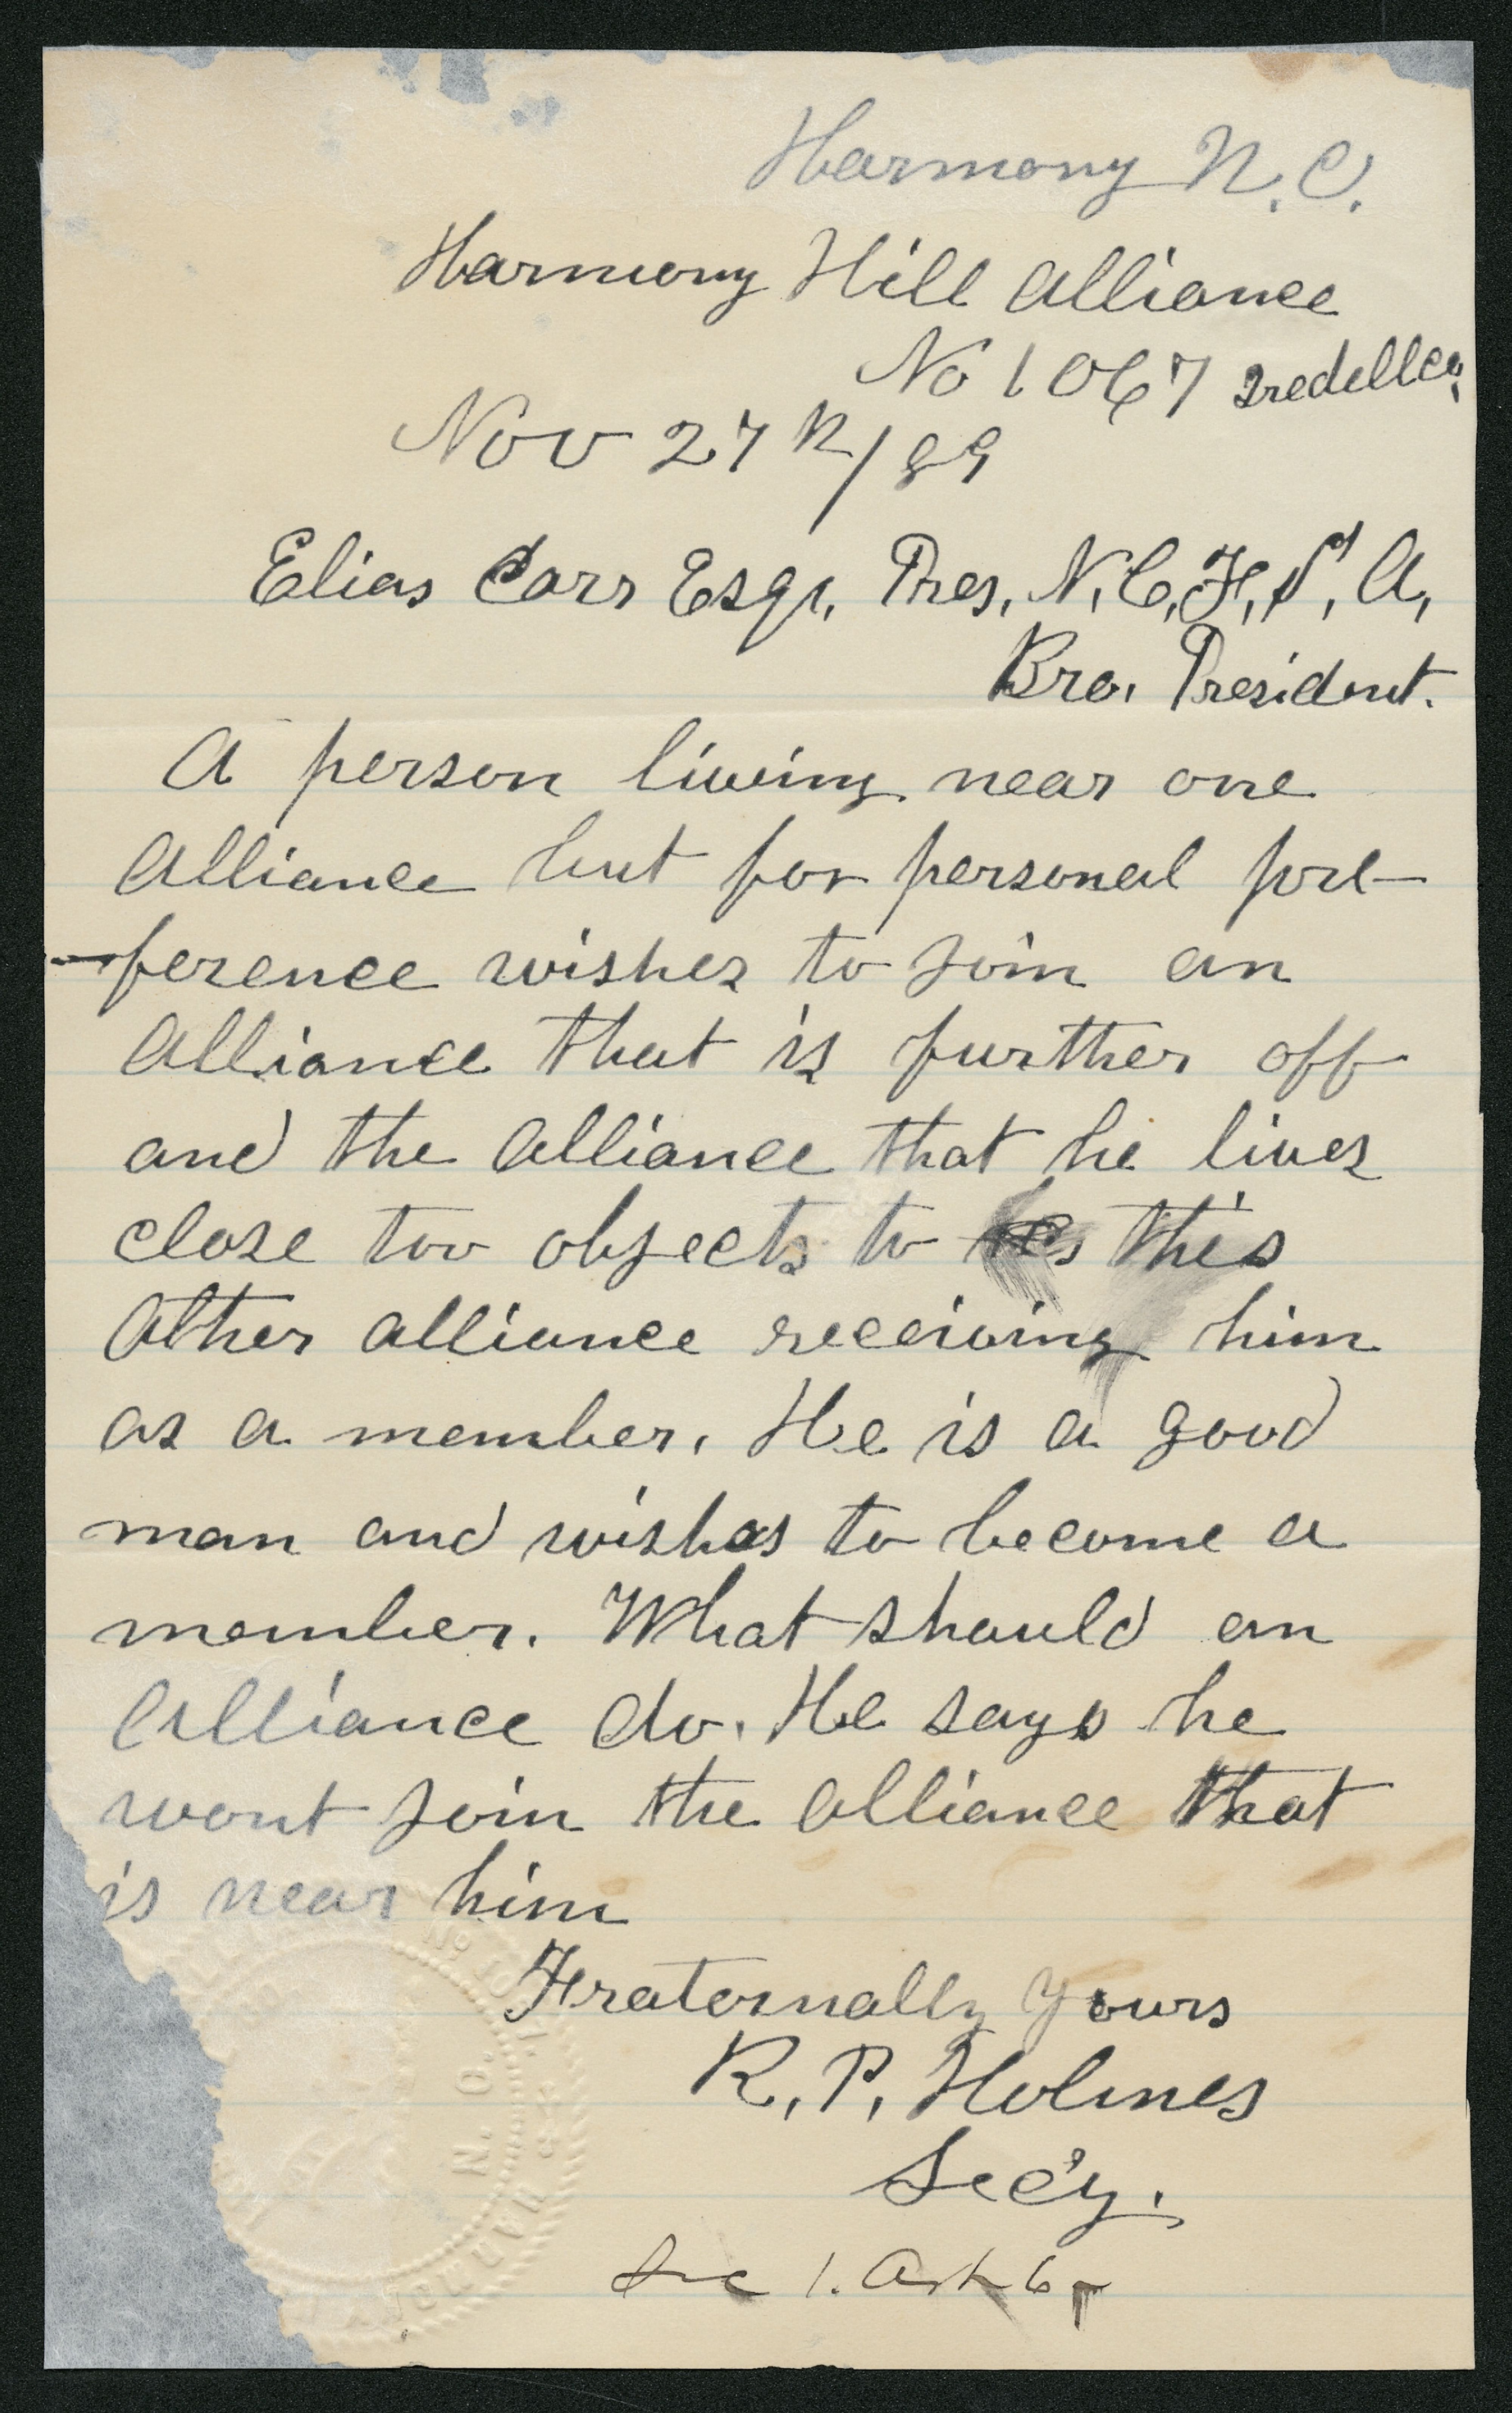 Harmony N. C.
Harmony Hill Alliance
No 1067 Iredell Co,
Nov 27th/89
Elias Carr Esqr, Pres, N, C, F, S, A,
Bro. President.
A person living near one
Alliance but for personal pre-
-ference wishes to join an
Alliance that is further off
and the Alliance that he lives
close too objects to this
Other alliance receiving him
as a member. He is a good
man and wishes to become a
member. What should an
Alliance do. He says he
wont join the Alliance that
is near him
Fraternally yours
R, P, Holmes
Sec'y.
Sec 1. Art 6
N. C.